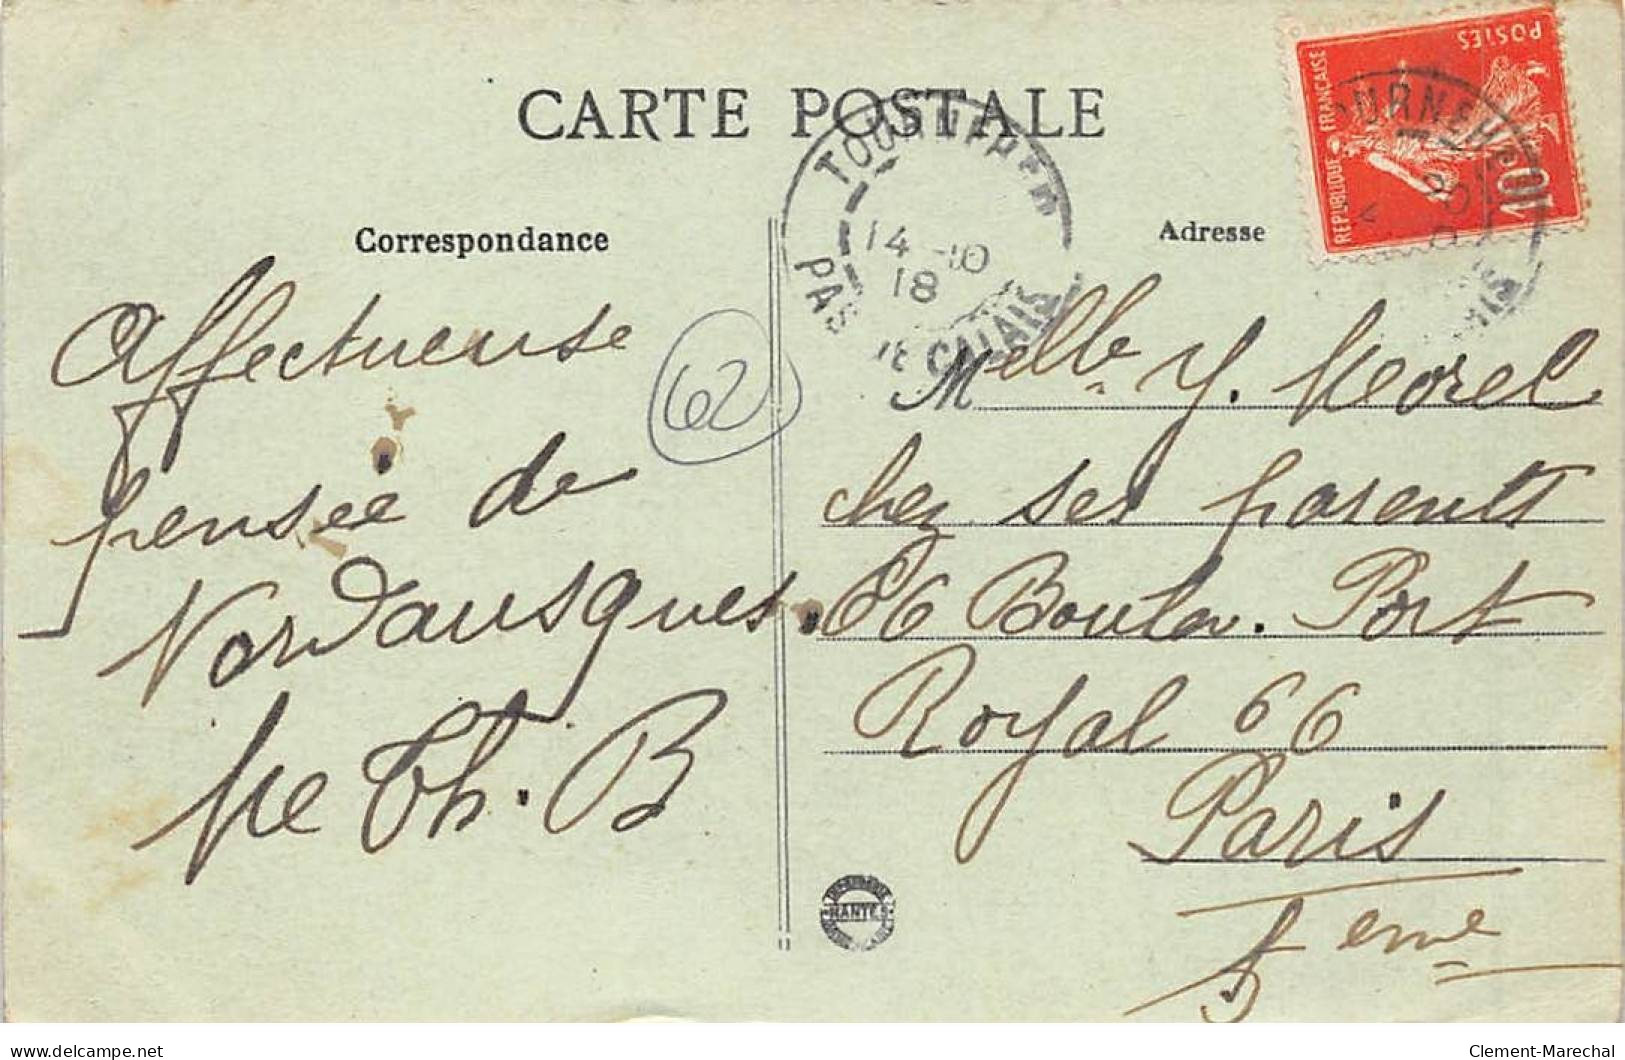 CARTE POSTALE
Correspondance
Adresse
POSTES
REPUBLIQUE FRANÇAISE
10
TOURNEHEM
14 -10
18
PAS DE CALAIS
OURNEHE
Affectueuse
pensée de
Nordausques.
Me Th. B
62
Melle Y. Morel
chez ses parents
66 Boulev. Port
Royal 66
Paris
5eme
NANTES
delcampe.net
Clement-Marechal